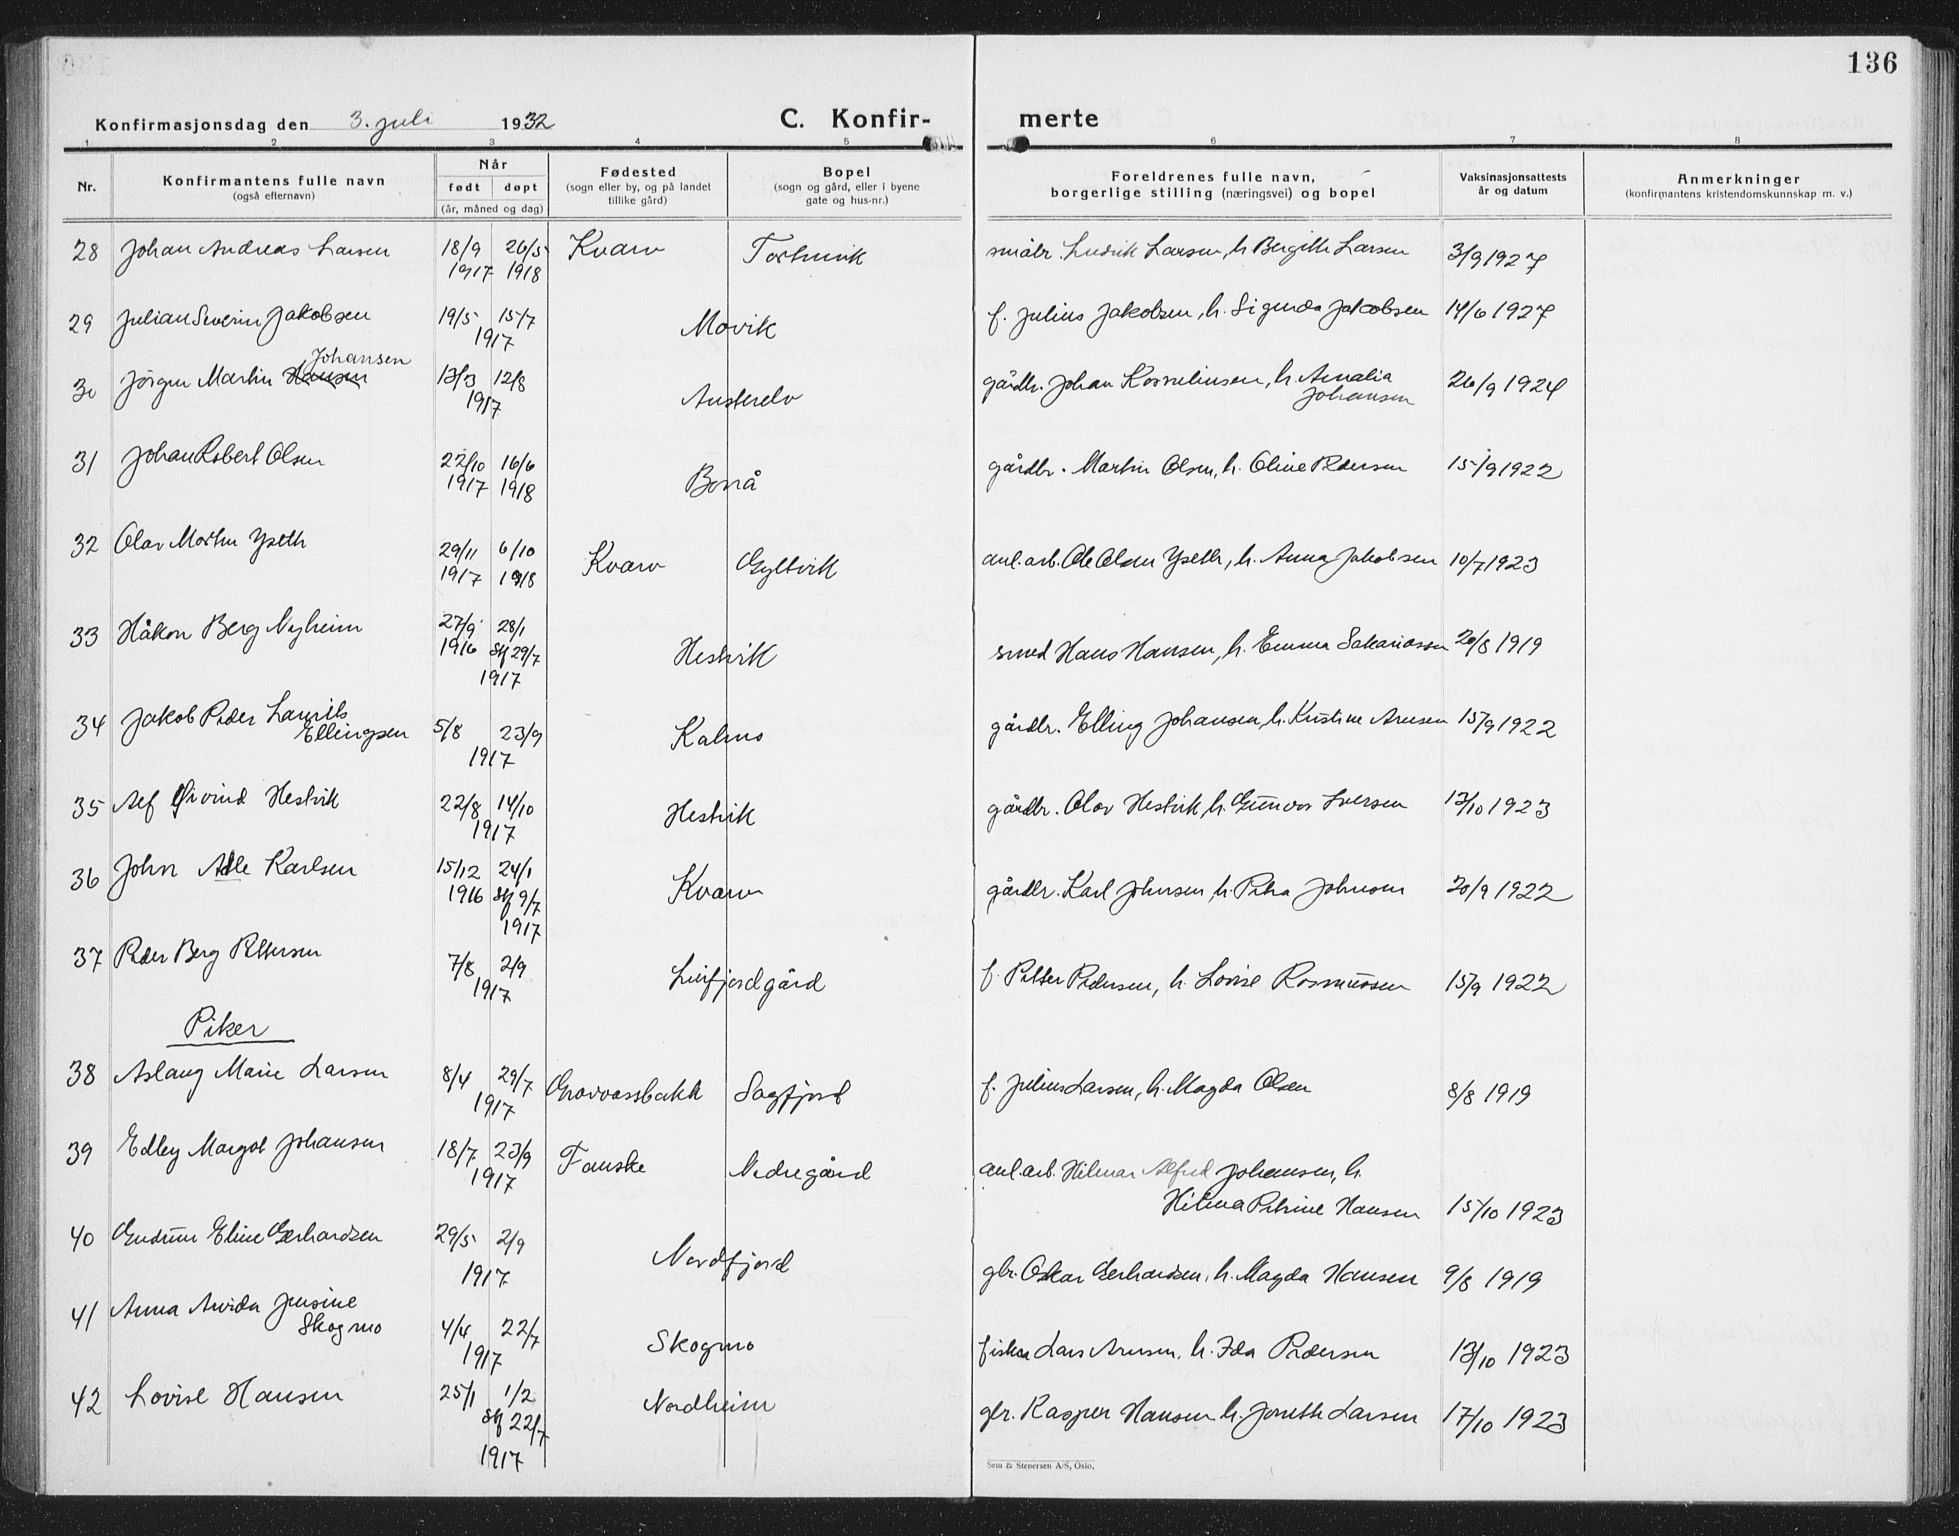 136
Konfirmasjonsdag den 3. juli 1932 C. Konfir- merte
1 2 3 4 5 6 7 8
Nr. Konfirmantens fulle navn (også efternavn) Når født døpt (år, måned og dag) Fødested (sogn eller by, og på landet tillike gård) Bopel (sogn og gård, eller i byene gate og hus-nr.) Foreldrenes fulle navn, borgerlige stilling (næringsvei) og bopel Vaksinasjonsattests år og datum Anmerkninger (konfirmantens kristendomskunnskap m. v.)
28 Johan Andreas Larsen 18/9 1917 26/5 1918 Kvarv Tortenvik småbr. Ludvik Larsen, h. Bergith Larsen 3/9 1927
29 Julian Severin Jakobsen 19/5 15/7 1917 Movik f. Julius Jakobsen, h. Sigurda Jakobsen 14/6 1927
30 Jörgen Martin Hansen Johansen 13/3 12/8 1917 Austerelv gårdbr. Johan Korneliussen, h. Amalia Johansen 26/9 1924
31 Johan Robert Olsen 22/10 1917 16/6 1918 Bonå gårdbr. Martin Olsen, h. Oline Pedersen 15/9 1922
32 Olav Martin Yseth 29/11 1917 6/10 1918 Kvarv Gyltvik anl.arb. Ole Olsen Yseth, h. Anna Jakobsen 10/7 1923
33 Håkon Berg Nyheim 27/9 1916 28/1 Stf 29/7 1917 Hestvik smed Hans Hansen, h. Emma Sakariassen 20/8 1919
34 Jakob Peder Laurits Ellingsen 5/8 23/9 1917 Kalvås gårdbr. Elling Johansen, h. Kristine Arnesen 15/9 1922
35 Alf Øivind Hestvik 22/8 14/10 1917 Hestvik gårdbr. Olav Hestvik, h. Gunvor Iversen 13/10 1923
36 John Adle Karlsen 15/12 1916 24/1 Stf 9/7 1917 Kvarv gårdbr. Karl Johnsen, h. Petra Johnsen 20/9 1922
37 Peder Berg Pettersen 7/8 2/9 1917 Leirfjordgård f. Petter Pedersen, h. Lovise Rasmussen 15/9 1922
Piker
38 Aslaug Marie Larsen 8/4 29/7 1917 Gravvassbakk Sagfjord f. Julius Larsen, h. Magda Olsen 8/8 1919
39 Edley Margot Johansen 18/7 23/9 1917 Fauske Nedregård anl.arb. Hilmar Alfred Johansen, h.
Hilma Petrine Hansen 15/10 1923
40 Gudrun Eline Gerhardsen 29/5 2/9 1917 Nordfjord gbr. Oskar Gerhardsen, h. Magda Hansen 9/8 1919
41 Anna Arvida Jensine Skogmo 4/4 22/7 1917 Skogmo fisker Lars Arnesen, h. Ida Pedersen 13/10 1923
42 Lovise Hansen 25/1 1/2 Stf 22/7 1917 Nordheim gbr. Kasper Hansen h. Joneth Larsen 17/10 1923
Sem & Stenersen A/S, Oslo.